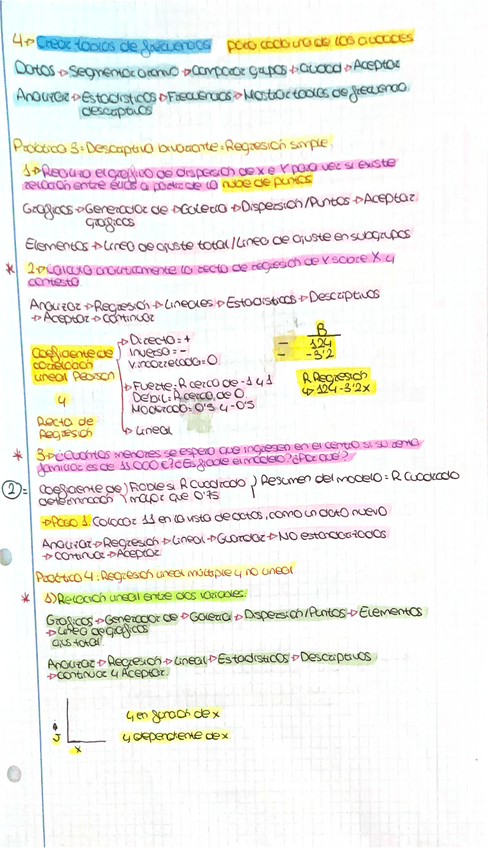 4→ Crear tablas de frecuencias para cada una de las ciudades
Datos → Segmentar archivo → Comparar grupos → Ciudad → Aceptar
Analizar → Estadísticos → Frecuencias → Mostrar tablas de frecuencia
descriptivos
Práctica 3: Descriptiva bivariante: Regresión simple.
1→ Realiza el gráfico de dispersión de X e Y para ver si existe
relación entre ellas a partir de la nube de puntos
Gráficos → Generador de → Galería → Dispersión/Puntos → Aceptar
gráficos
Elementos → Línea de ajuste total/Línea de ajuste en subgrupos
* 2→ Calcula analíticamente la recta de regresión de Y sobre X y
contesta
Analizar → Regresión → Lineales → Estadísticos → Descriptivos
→ Aceptar → Continuar
Coeficiente de
correlación
lineal Pearson
y
Recta de
Regresión
→ Directa = +
Inversa = -
V.incorrelada = 0
→ Fuerte: R cerca de -1 y 1
Débil: R cerca de 0
Moderada: 0'5 y -0'5
→ Lineal
B
- 124
- -3'2
R Regresión
↳ 124-3'2x
* 3→ ¿Cuántos menores se espera que ingresen en el centro si su renta
familiar es de 11.000€? ¿Es fiable el modelo? ¿Por qué?
2 = Coeficiente de } Fiable si R cuadrado } Resumen del modelo = R cuadrado
determinación } mayor que 0'75
→ Paso 1. Colocar 11 en la vista de datos, como un dato nuevo
Analizar → Regresión → Lineal → Guardar → No estandarizados
→ Continuar → Aceptar
Práctica 4: Regresión lineal múltiple y no lineal
* 1) Relación lineal entre dos variables:
Gráficos → Generador de → Galería → Dispersión/Puntos → Elementos
→ Línea de gráficos
ajus total
Analizar → Regresión → Lineal → Estadísticos → Descriptivos
→ Continuar y Aceptar
y en función de x
y dependiente de x
x